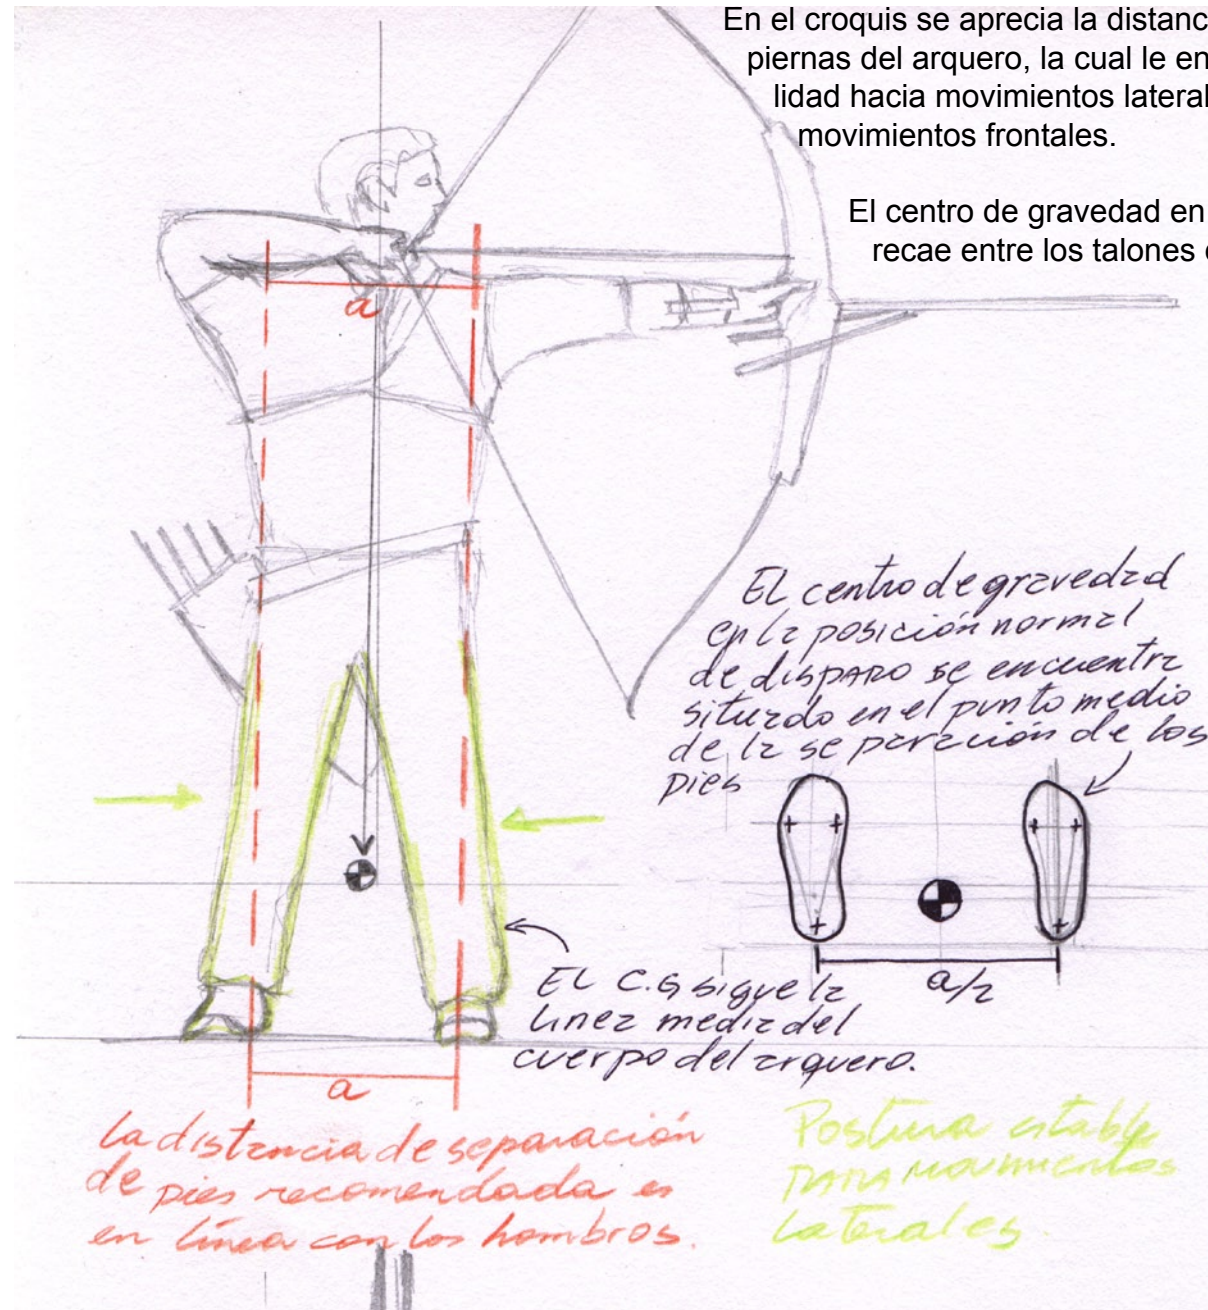 En el croquis se aprecia la distanc
piernas del arquero, la cual le en
lidad hacia movimientos lateral
movimientos frontales.
El centro de gravedad en
recae entre los talones
a
El centro de gravedad
en la posición normal
de disparo se encuentra
situado en el punto medio
de la separación de los
pies
a/2
EL C.G sigue la
linea media del
cuerpo del arquero.
a
La distancia de separación
de pies recomendada es
en línea con los hombros.
Postura estable
PARA movimientos
laterales.